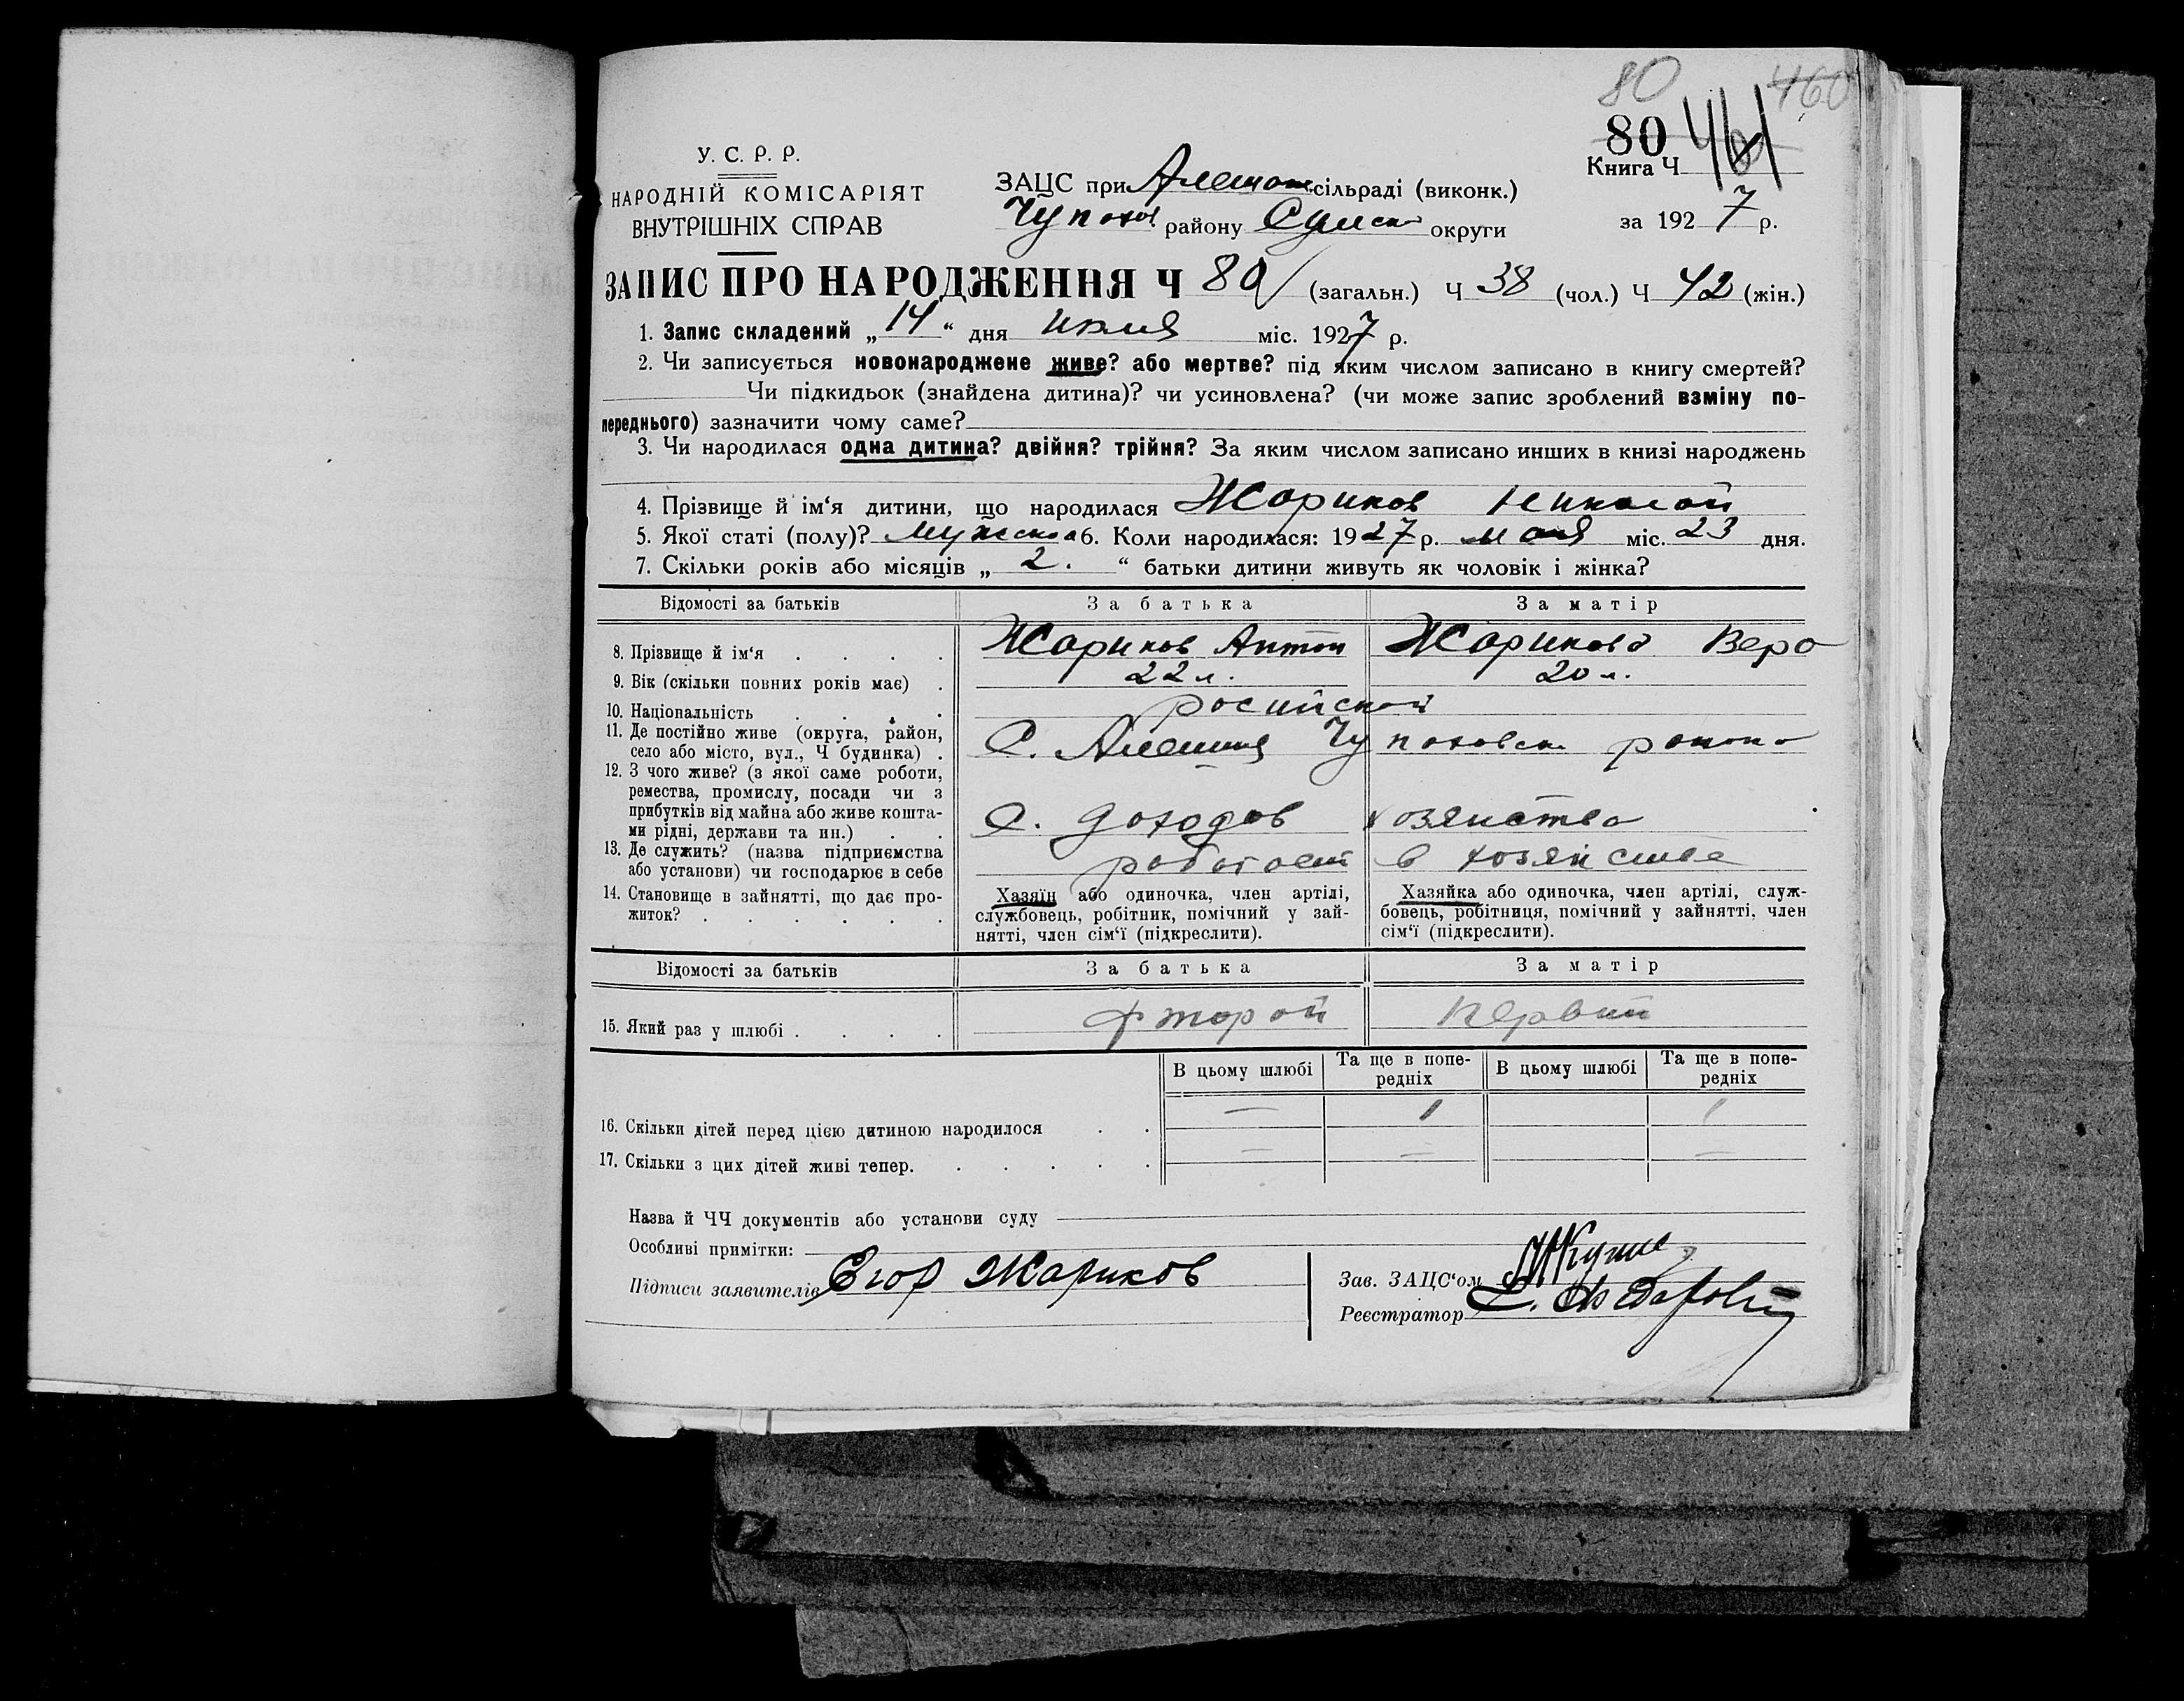 80 460
80 461
У. С. Р. Р.
НАРОДНІЙ КОМІСАРІЯТ
ВНУТРІШНІХ СПРАВ
Книга Ч
ЗАЦС при Алешан сільраді (виконк.)
Чупахов району Сумск округи
за 1927 р.
ЗАПИС ПРО НАРОДЖЕННЯ Ч 80 (загальн.) Ч 38 (чол.) Ч 42 (жін.)
1. Запис складений „ 14 “ дня июля міс. 1927 р.
2. Чи записується новонароджене живе? або мертве? під яким числом записано в книгу смертей?
Чи підкидьок (знайдена дитина)? чи усиновлена? (чи може запис зроблений взміну по-
переднього) зазначити чому саме?
3. Чи народилася одна дитина? двійня? трійня? За яким числом записано инших в книзі народжень
4. Прізвище й ім‘я дитини, що народилася Жариков Николай
5. Якої статі (полу)? мужской 6. Коли народилася: 1927 р. мая міс. 23 дня.
7. Скільки років або місяців „ 2. “ батьки дитини живуть як чоловік і жінка?
Відомості за батьків За батька За матір
8. Прізвище й ім‘я . . . . Жариков Антон Жарикова Вера
9. Вік (скільки повних років має) . 22 л. 20 л.
10. Національність . . . . росийской
11. Де постійно живе (округа, район,
село або місто, вул., Ч будинка) . С. Алешня Чупаховск района
12. З чого живе? (з якої саме роботи,
ремества, промислу, посади чи з
прибутків від майна або живе кошта-
ми рідні, держави та ин.) . . С. доходов хозяиства
13. Де служить? (назва підприємства
або установи) чи господарює в себе работает в хозяйстве
14. Становище в зайнятті, що дає про-
житок? . . . . . .
Хазяїн або одиночка, член артілі,
службовець, робітник, помічний у зай-
нятті, член сім‘ї (підкреслити).
Хазяйка або одиночка, член артілі, служ-
бовець, робітниця, помічний у зайнятті, член
сім‘ї (підкреслити).
Відомості за батьків За батька За матір
15. Який раз у шлюбі . . . . фторой Первий
В цьому шлюбі Та ще в попе-
редніх В цьому шлюбі Та ще в попе-
редніх
16. Скільки дітей перед цією дитиною народилося . . — 1 1
17. Скільки з цих дітей живі тепер. . . . . . — — —
Назва й ЧЧ документів або установи суду
Особливі примітки:
Підписи заявителів Егор Жариков
Зав. ЗАЦС‘ом
Реєстратор